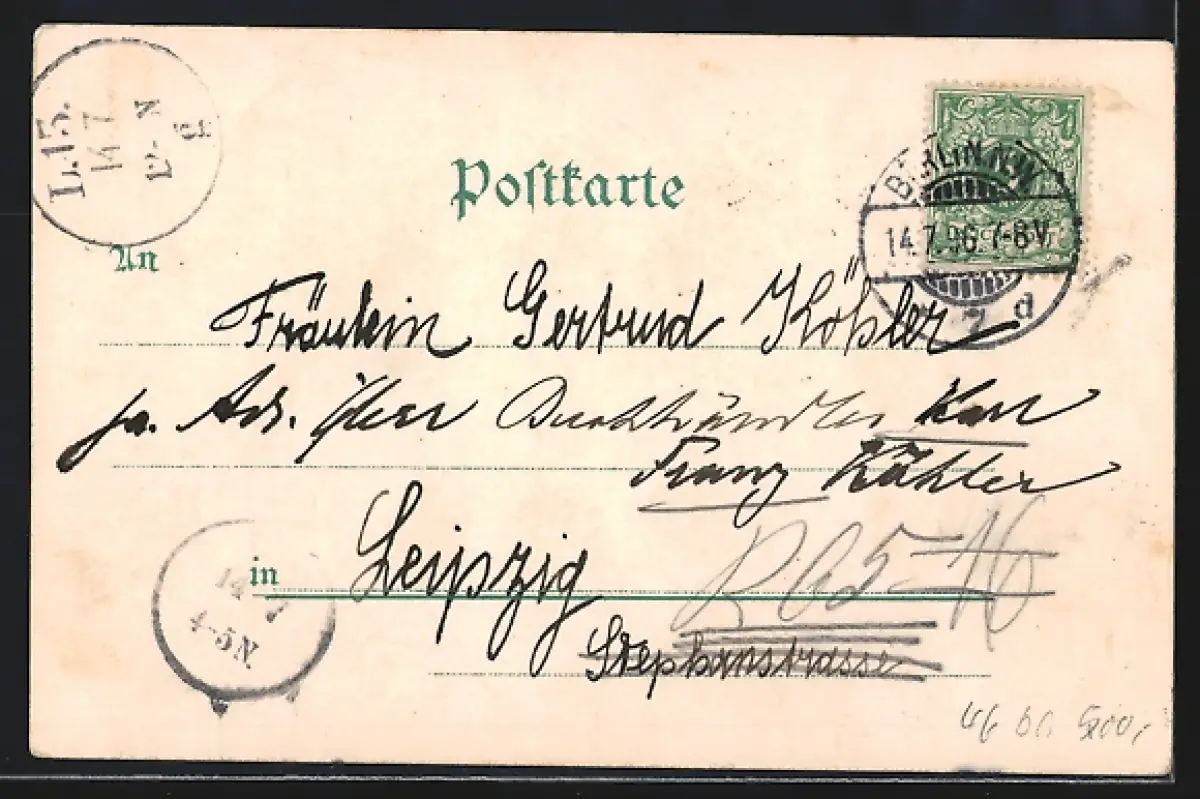 L. 15.
14 7
12-N
g
Postkarte
BERLIN N.W.
14.7.96.7-8V.
7 d
An
Fräulein Gertrud Köhler
pr. Adr. Herr Buchhändler Karl
Franz Köhler
in Leipzig
Stephanstrasse
14 7
4-5N.
46 500,-